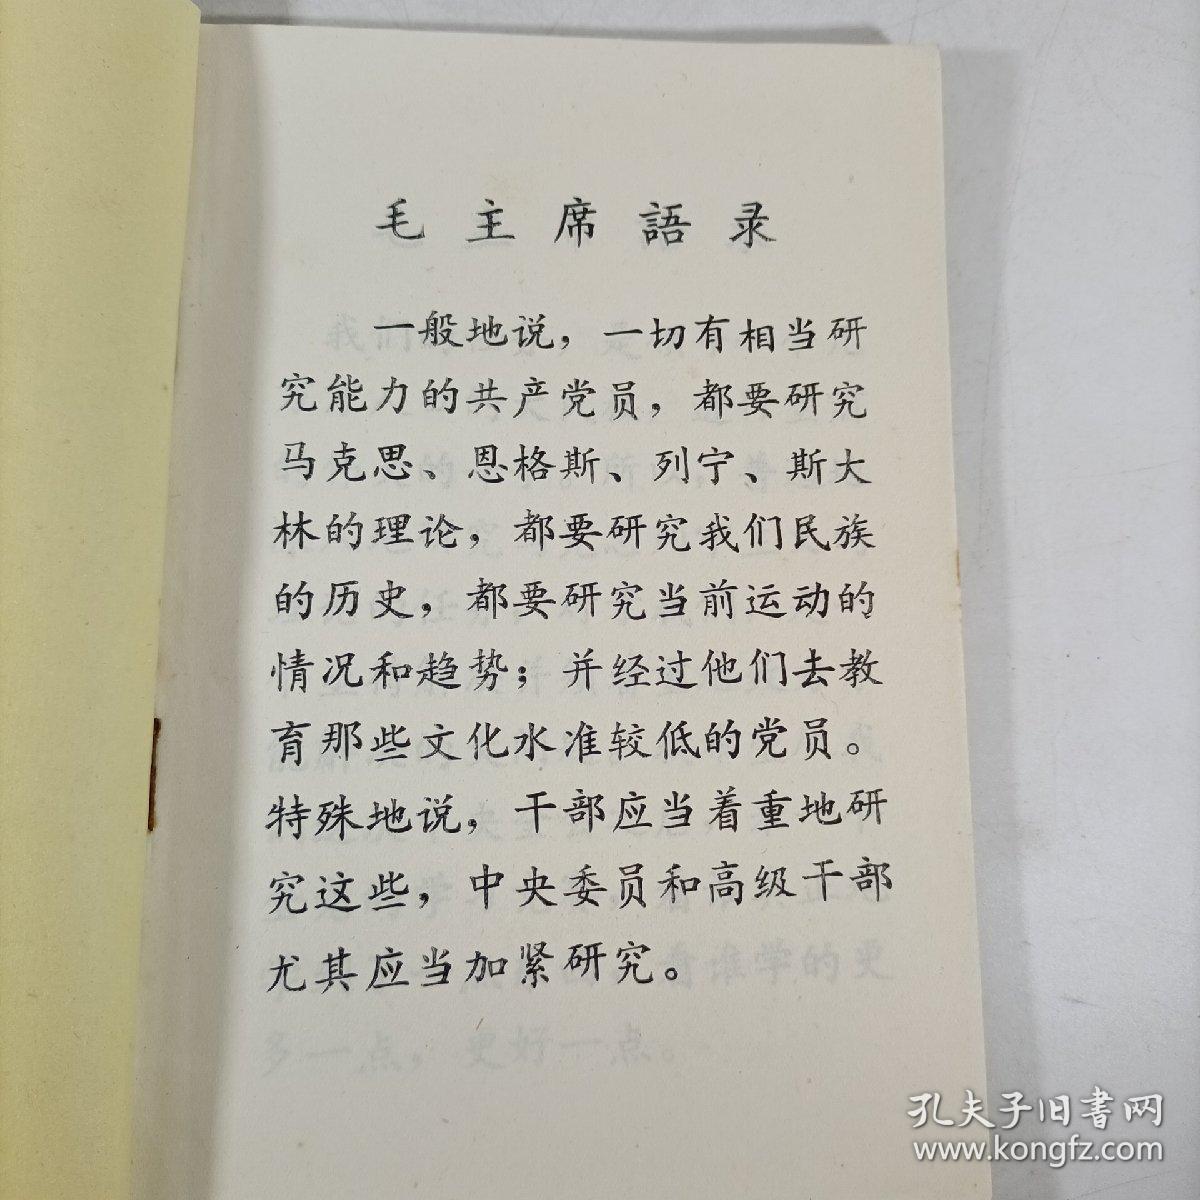 毛主席語录
一般地说，一切有相当研
究能力的共产党员，都要研究
马克思、恩格斯、列宁、斯大
林的理论，都要研究我们民族
的历史，都要研究当前运动的
情况和趋势；并经过他们去教
育那些文化水准较低的党员。
特殊地说，干部应当着重地研
究这些，中央委员和高级干部
尤其应当加紧研究。
看谁学的更
多一点，更好一点。
孔夫子旧書网
www.kongfz.com